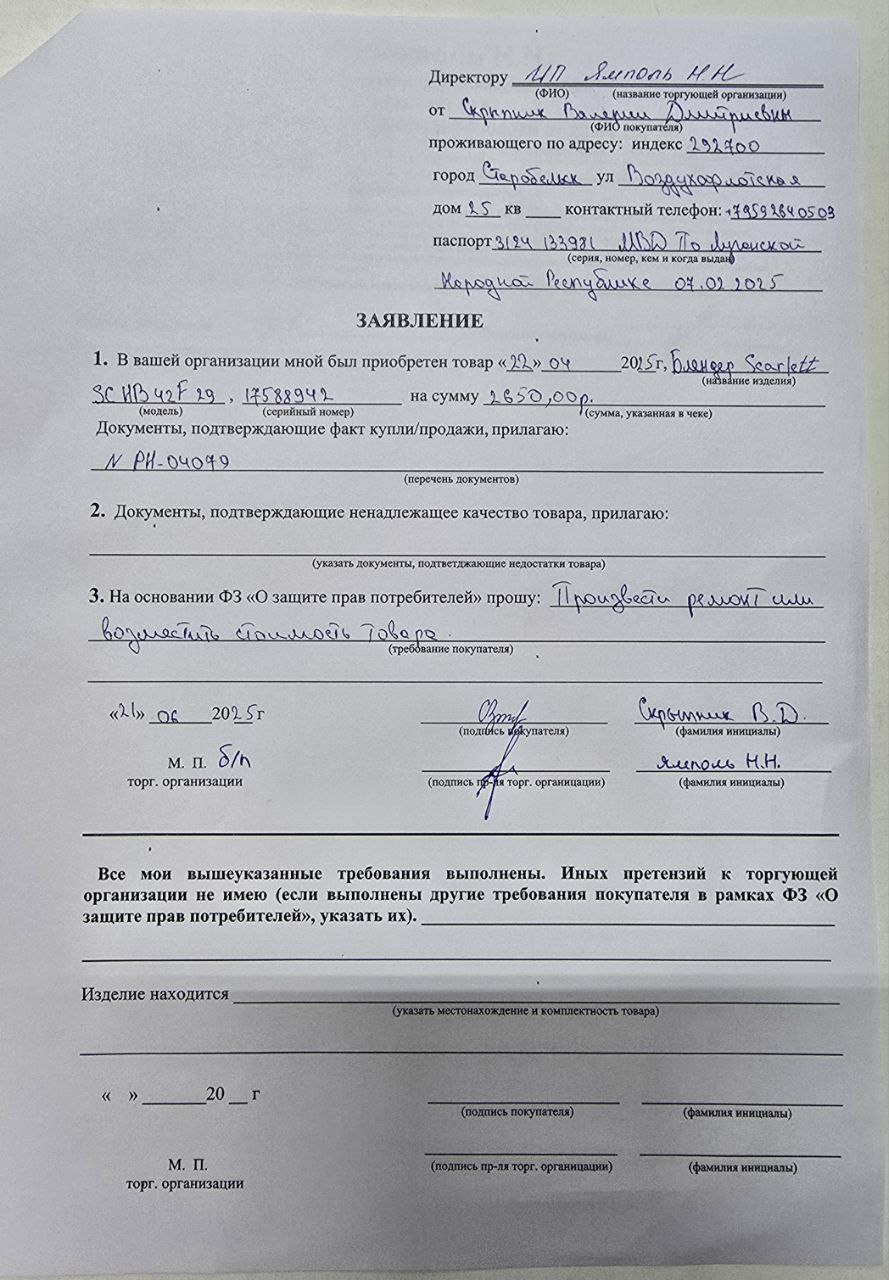 Директору ИП Ямполь Н.Н
(ФИО) (название торгующей организации)
от Скрыпник Валерии Дмитриевны
(ФИО покупателя)
проживающего по адресу: индекс 292700
город Старобельск ул Воздухофлотская
дом 25 кв ____ контактный телефон: +79592640503
паспорт 3124 133981 МВД По Луганской
(серия, номер, кем и когда выдан)
Народной Республике 07.02.2025
ЗАЯВЛЕНИЕ
1. В вашей организации мной был приобретен товар «22» 04 2025г, Блендер Scarlett
(название изделия)
SC HB42F29, 17588942 на сумму 2650,00р.
(модель) (серийный номер) (сумма, указанная в чеке)
Документы, подтверждающие факт купли/продажи, прилагаю:
N РН-04079
(перечень документов)
2. Документы, подтверждающие ненадлежащее качество товара, прилагаю:
(указать документы, подтветджающие недостатки товара)
3. На основании ФЗ «О защите прав потребителей» прошу: Произвести ремонт или
возместить стоимость товара.
(требование покупателя)
«21» 06 2025г Скрыпник В.Д.
(подпись покупателя) (фамилия инициалы)
М. П. б/п Ямполь Н.Н.
торг. организации (подпись пр-ля торг. органицации) (фамилия инициалы)
Все мои вышеуказанные требования выполнены. Иных претензий к торгующей
организации не имею (если выполнены другие требования покупателя в рамках ФЗ «О
защите прав потребителей», указать их).
Изделие находится
(указать местонахождение и комплектность товара)
« » _______20 __ г
(подпись покупателя) (фамилия инициалы)
М. П.
торг. организации (подпись пр-ля торг. органицации) (фамилия инициалы)